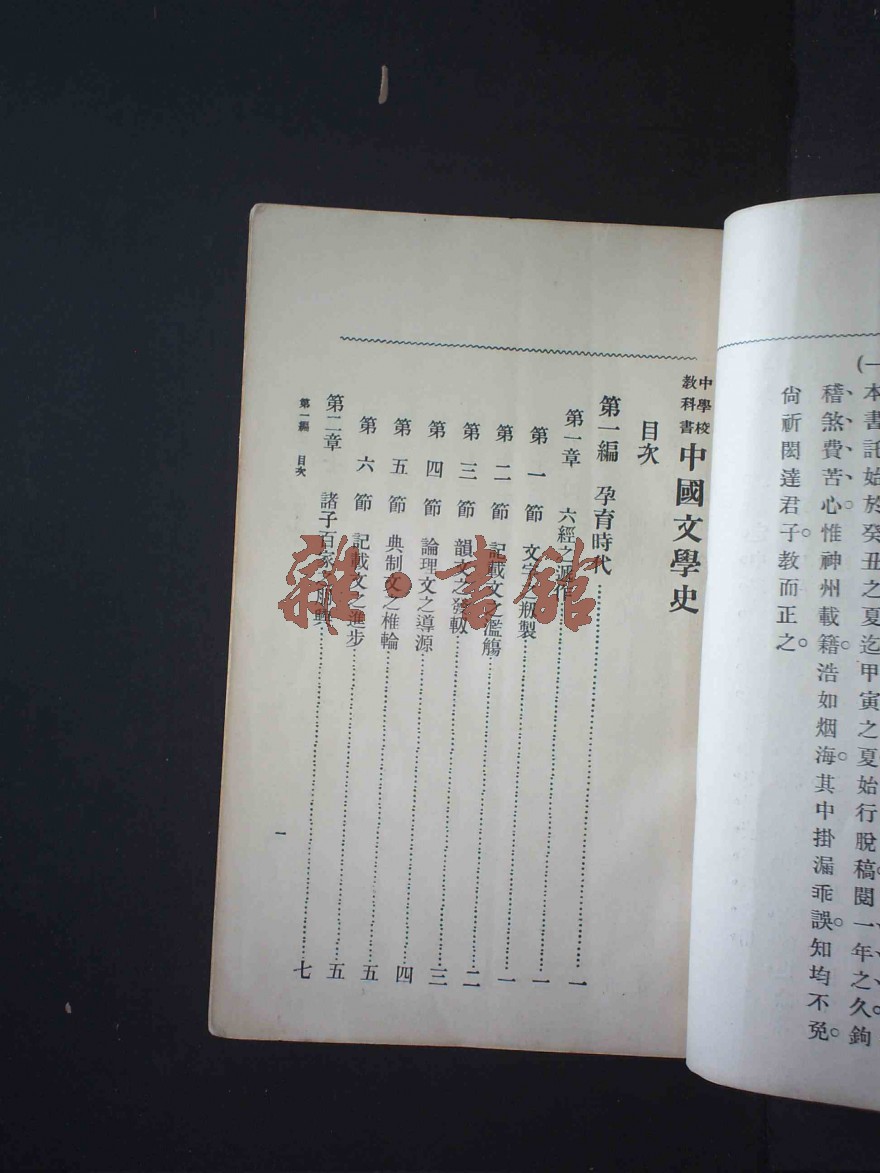 (一
本書託始於癸丑之夏迄甲寅之夏始行脫稿。閱一年之久。鉤
稽煞費苦心。惟神州載籍。浩如烟海。其中掛漏乖誤。知均不免。
尙祈閎達君子。教而正之。
中學校
教科書
中國文學史
目次
第一編 孕育時代 一
第一章 六經之 一
第一節 文字之瓶製 一
第二節 記載文之濫觴 二
第三節 韻文之發軔 三
第四節 論理文之導源 四
第五節 典制文之椎輪 五
第六節 記載文之進步 五
第二章 諸子百家之朋興 七
第一編 目次
一
雜·書館